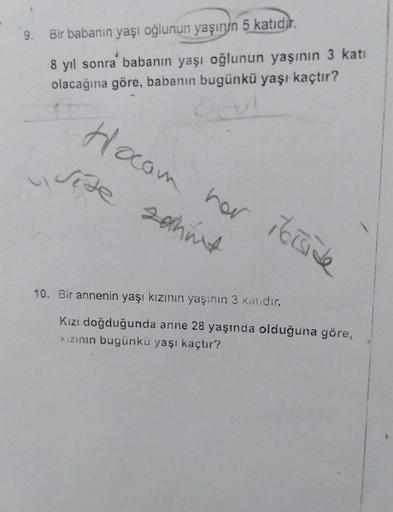 9. Bir babanın yaşı oğlunun yaşının 5 katıdır.
8 yıl sonra babanın yaşı oğlunun yaşının 3 katı
olacağına göre, babanın bugünkü yaşı kaçtır?
Hocam her ikiside
size zahmet
10. Bir annenin yaşı kızının yaşının 3 katıdır.
Kızı doğduğunda anne 28 yaşında olduğuna göre,
kızının bugünkü yaşı kaçtır?